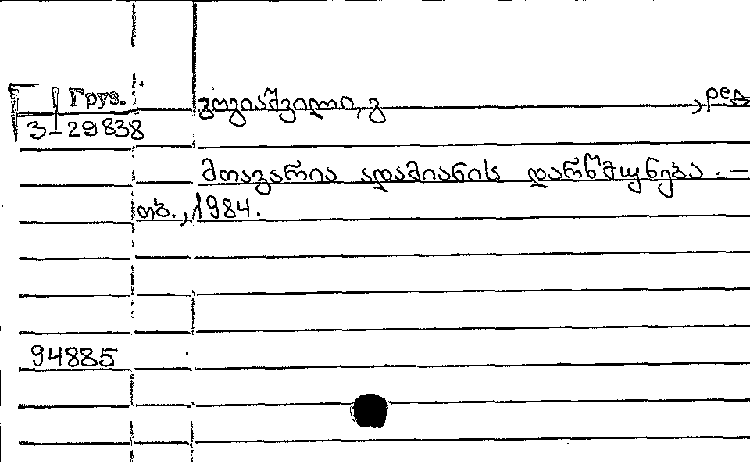 Груз. გოგიაშვილი, გ , ред
3-29838
მთავარია ადამიანის დარწმუნება. —
თბ., 1984.
94885